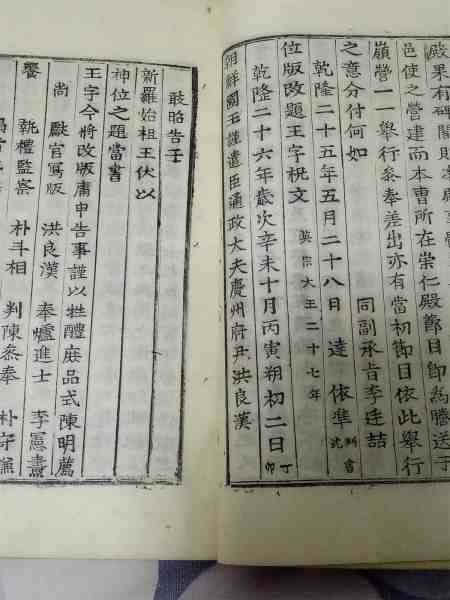 殿果有碑閣則
邑使之營建而本曹所在崇仁殿節目即為謄送于
嶺營一一舉行參奉差出亦有當初節目依此舉行
之意分付何如 同副承旨李廷喆
乾隆二十五年五月二十八日 達 依準 判書沈
位版改題王字祝文 英宗大王二十七年
乾隆二十六年歲次辛未十月丙寅朔初二日丁卯
朝鮮國王謹遣臣通政大夫慶州府尹洪良漢
敢昭告于
新羅始祖王伏以
神位之題當書
王字今將改版庸申告事謹以牲醴庶品式陳明薦
尚 獻官寫版 洪良漢 奉爐進士 李憲燾
饗 執禮監察 朴斗相 判陳參奉 朴守